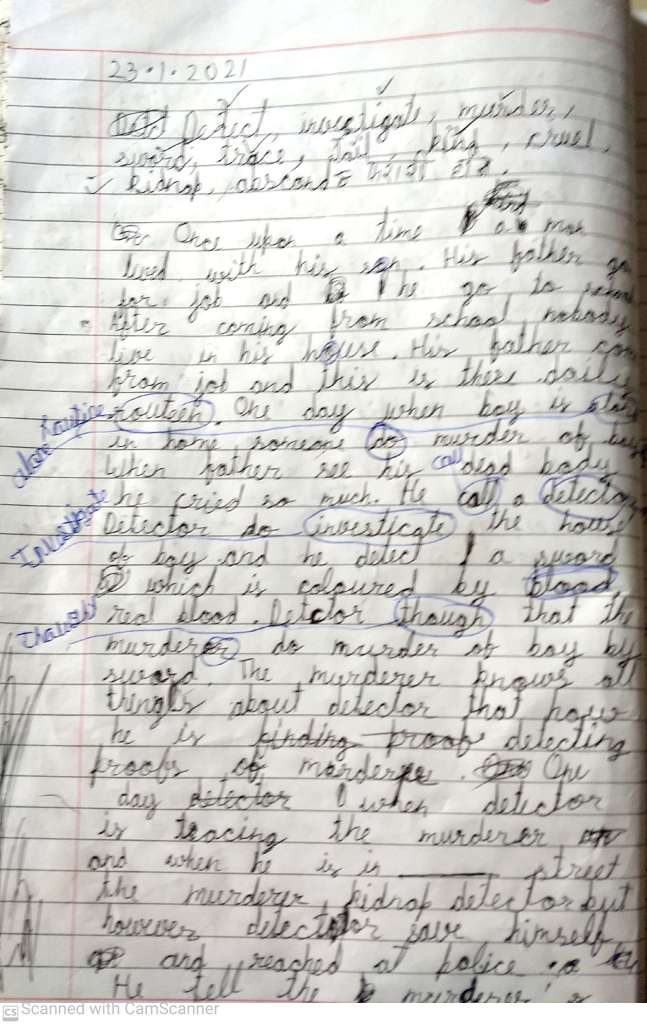 23.1.2021
Detect, investigate, murder,
sword, trace, tail, king, cruel,
kidnap, abscond =
Once upon a time a man
lived with his son. His father go
for job and he go to school
After coming from school, nobody
live in his house. His father com
from job and this is there daily
routeen. One day when boy is alone
Routine
alone
in home someone do murder of boy
When father see his dead body
call
he cried so much. He call a detector
Investigate
Detector do investicate the house
of boy and he detect a sword
which is coloured by blood
real blood. Detctor though that the
Thought
murderer do murder of boy by
sword. The murderer knows all
thengls about detector that how
he is finding proof detecting
proofs of marderer. One
day detector when detector
is tracing the murderer
and when he is in ______ street
the murderer kidnap detector but
however detector save himself
and reached at police
He tell the murderer's
CS Scanned with CamScanner